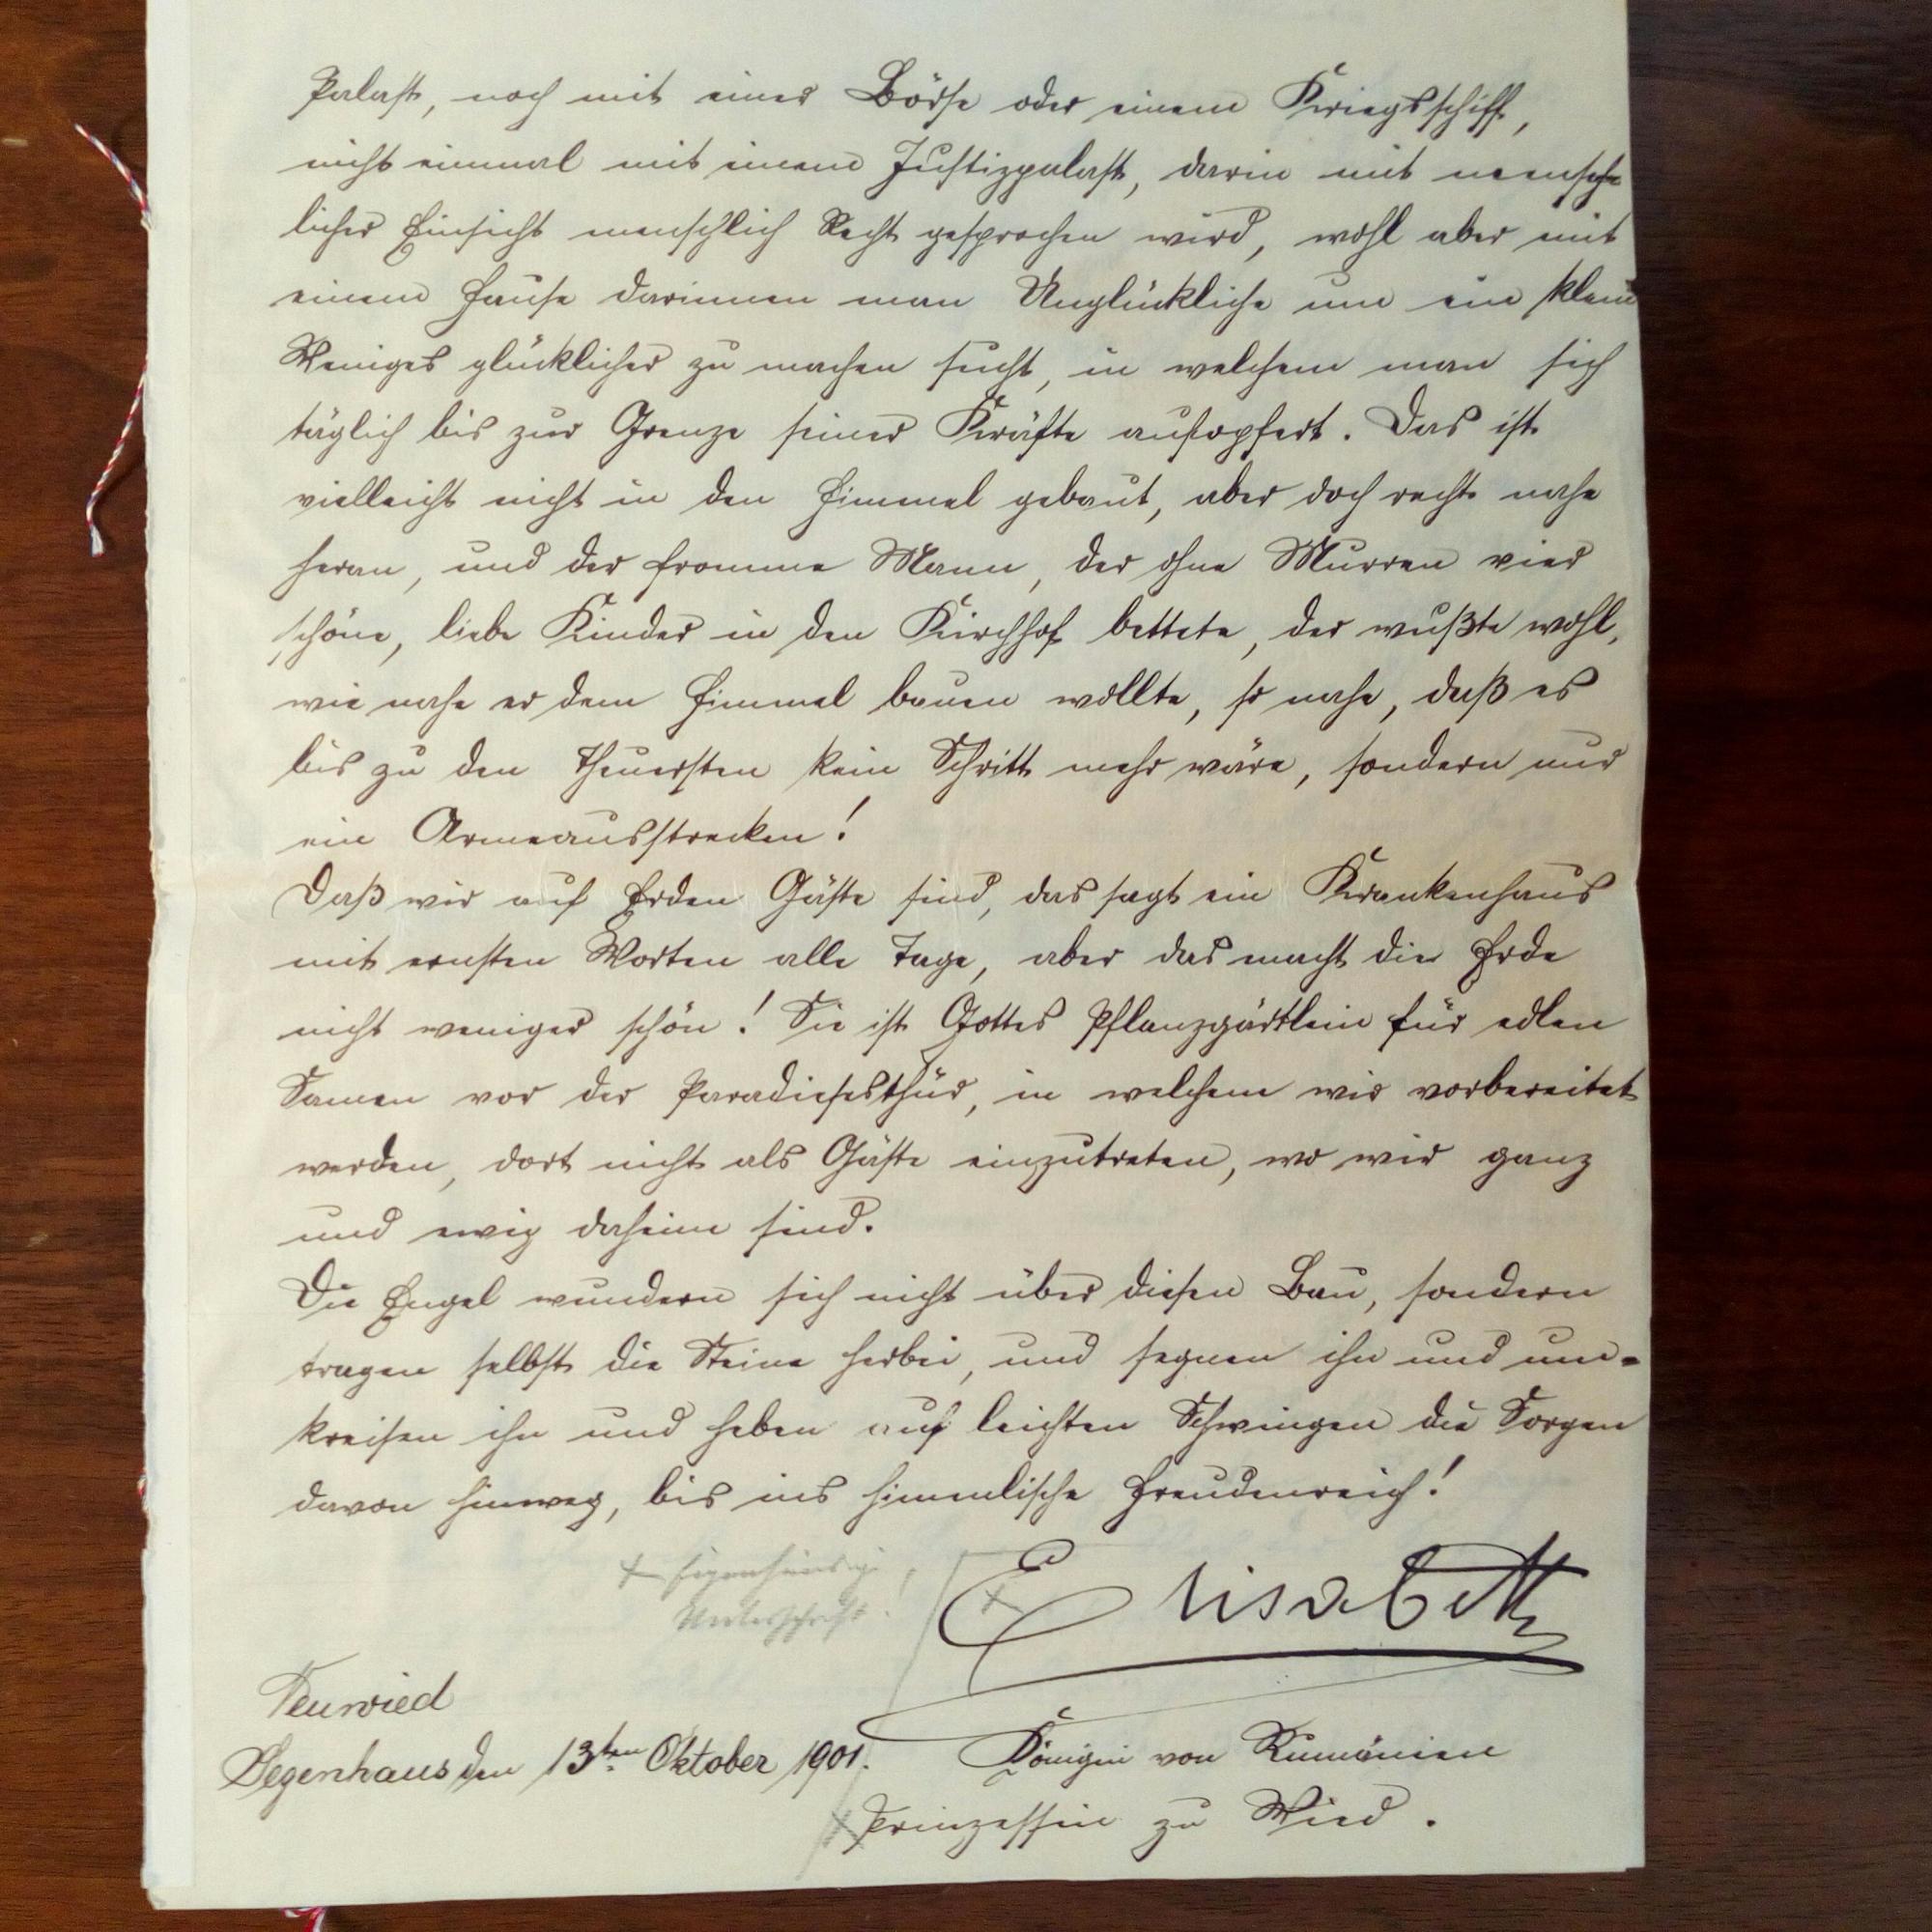 Palast, noch mit einer Börse oder einem Kriegsschiff,
nicht einmal mit einem Justizpalast, darin mit mensch
licher Einsicht menschlich Recht gesprochen wird, wohl aber mit
einem Hause darinnen man Unglückliche um ein klein
Weniges glücklicher zu machen sucht, in welchem man sich
täglich bis zur Grenze seiner Kräfte aufopfert. Das ist
vielleicht nicht in den Himmel gebaut, aber doch recht nahe
heran, und der fromme Mann, der ohne Murren vier
schöne, liebe Kinder in den Kirchhof bettete, der wußte wohl,
wie nahe er dem Himmel bauen wollte, so nahe, daß es
bis zu den Theuersten kein Schritt mehr wäre, sondern nur
ein Armeausstrecken!
Daß wir auf Erden Gäste sind, das sagt ein Krankenhaus
mit ernsten Worten alle Tage, aber das macht die Erde
nicht weniger schön! Sie ist Gottes Pflanzgärtlein für edlen
Samen vor der Paradiesesthür, in welchem wir vorbereitet
werden, dort nicht als Gäste einzutreten, wo wir ganz
und ewig daheim sind.
Die Engel wundern sich nicht über diesen Bau, sondern
tragen selbst die Steine herbei, und segnen ihn und um-
kreisen ihn und heben auf leichten Schwingen die Sorgen
davon hinweg, bis ins himmlische Freudenreich!
+ Eigenhändige
Unterschrift!
Elisabeth
Neuwied
Segenhaus den 13ten Oktober 1901.
Königin von Rumänien
Prinzessin zu Wied.